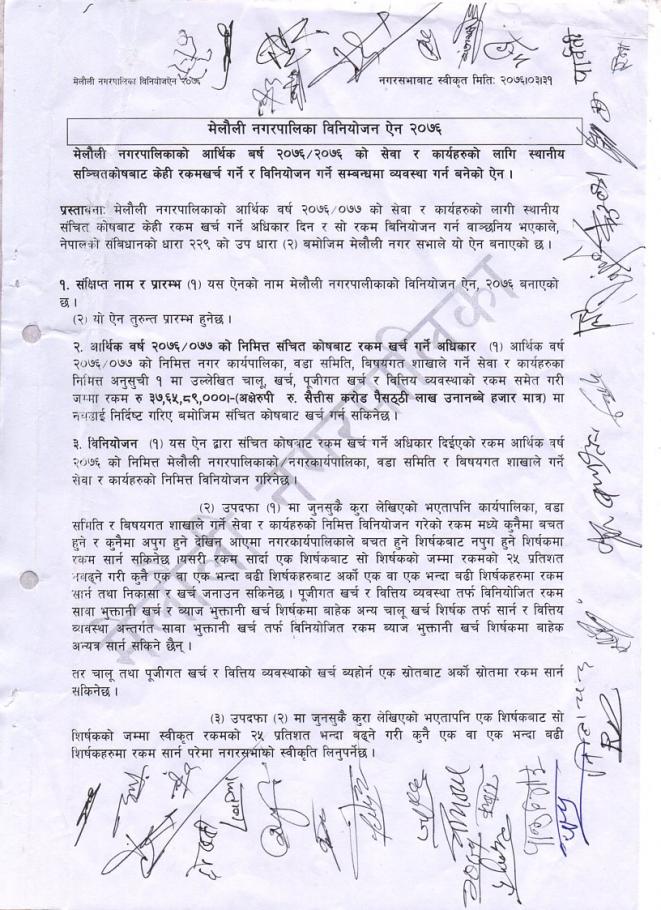 मेलौली नगरपालिका विनियोजऐन २०७६
नगरसभाबाट स्वीकृत मितिः २०७६।०३।३१
मेलौली नगरपालिका विनियोजन ऐन २०७६
मेलौली नगरपालिकाको आर्थिक बर्ष २०७६/२०७६ को सेवा र कार्यहरुको लागि स्थानीय
सञ्चितकोषबाट केही रकमखर्च गर्ने र विनियोजन गर्ने सम्बन्धमा व्यवस्था गर्न बनेको ऐन ।
प्रस्तावनाः मेलौली नगरपालिकाको आर्थिक वर्ष २०७६/०७७ को सेवा र कार्यहरुको लागी स्थानीय
संचित कोषबाट केही रकम खर्च गर्ने अधिकार दिन र सो रकम बिनियोजन गर्न वाञ्छनिय भएकाले,
नेपालको संबिधानको धारा २२९ को उप धारा (२) बमोजिम मेलौली नगर सभाले यो ऐन बनाएको छ ।
१. संक्षिप्त नाम र प्रारम्भ (१) यस ऐनको नाम मेलौली नगरपालीकाको विनियोजन ऐन, २०७६ बनाएको
छ ।
(२) यो ऐन तुरुन्त प्रारम्भ हुनेछ ।
२. आर्थिक वर्ष २०७६/०७७ को निमित्त संचित कोषबाट रकम खर्च गर्ने अधिकार (१) आर्थिक वर्ष
२०७६/०७७ को निमित्त नगर कार्यपालिका, वडा समिति, बिषयगत शाखाले गर्ने सेवा र कार्यहरुका
निमित्त अनुसुची १ मा उल्लेखित चालू, खर्च, पूजीगत खर्च र वित्तिय व्यवस्थाको रकम समेत गरी
जम्मा रकम रु ३७,६५,८९,०००।-(अक्षेरुपी रु. सैत्तीस करोड पैसठ्ठी लाख उनानब्बे हजार मात्र) मा
नबढाई निर्दिष्ट गरिए बमोजिम संचित कोषबाट खर्च गर्न सकिनेछ ।
३. विनियोजन (१) यस ऐन द्वारा संचित कोषबाट रकम खर्च गर्ने अधिकार दिईएको रकम आर्थिक वर्ष
२०७६ को निमित्त मेलौली नगरपालिकाको ,नगरकार्यपालिका, वडा समिति र बिषयगत शाखाले गर्ने
सेवा र कार्यहरुको निमित्त विनियोजन गरिनेछ ।
(२) उपदफा (१) मा जुनसुकै कुरा लेखिएको भएतापनि कार्यपालिका, वडा
समिति र बिषयगत शाखाले गर्ने सेवा र कार्यहरुको निमित्त विनियोजन गरेको रकम मध्ये कुनैमा बचत
हुने र कुनैमा अपुग हुने देखिन आएमा नगरकार्यपालिकाले बचत हुने शिर्षकबाट नपुग हुने शिर्षकमा
रकम सार्न सकिनेछ ।यसरी रकम सार्दा एक शिर्षकबाट सो शिर्षकको जम्मा रकमको २५ प्रतिशत
नबढ्ने गरी कुनै एक वा एक भन्दा बढी शिर्षकहरुबाट अर्को एक वा एक भन्दा बढी शिर्षकहरुमा रकम
सार्न तथा निकासा र खर्च जनाउन सकिनेछ । पूजीगत खर्च र वित्तिय व्यवस्था तर्फ विनियोजित रकम
सावा भुक्तानी खर्च र ब्याज भुक्तानी खर्च शिर्षकमा बाहेक अन्य चालू खर्च शिर्षक तर्फ सार्न र वित्तिय
व्यवस्था अन्तर्गत सावा भुक्तानी खर्च तर्फ विनियोजित रकम ब्याज भुक्तानी खर्च शिर्षकमा बाहेक
अन्यत्र सार्न सकिने छैन् ।
तर चालू तथा पूजीगत खर्च र वित्तिय व्यवस्थाको खर्च ब्यहोर्न एक स्रोतबाट अर्को स्रोतमा रकम सार्न
सकिनेछ ।
(३) उपदफा (२) मा जुनसुकै कुरा लेखिएको भएतापनि एक शिर्षकबाट सो
शिर्षकको जम्मा स्वीकृत रकमको २५ प्रतिशत भन्दा बढ्ने गरी कुनै एक वा एक भन्दा बढी
शिर्षकहरुमा रकम सार्न परेमा नगरसभाको स्वीकृति लिनुपर्नेछ ।
मेलौली नगरपालिका
पार्वती